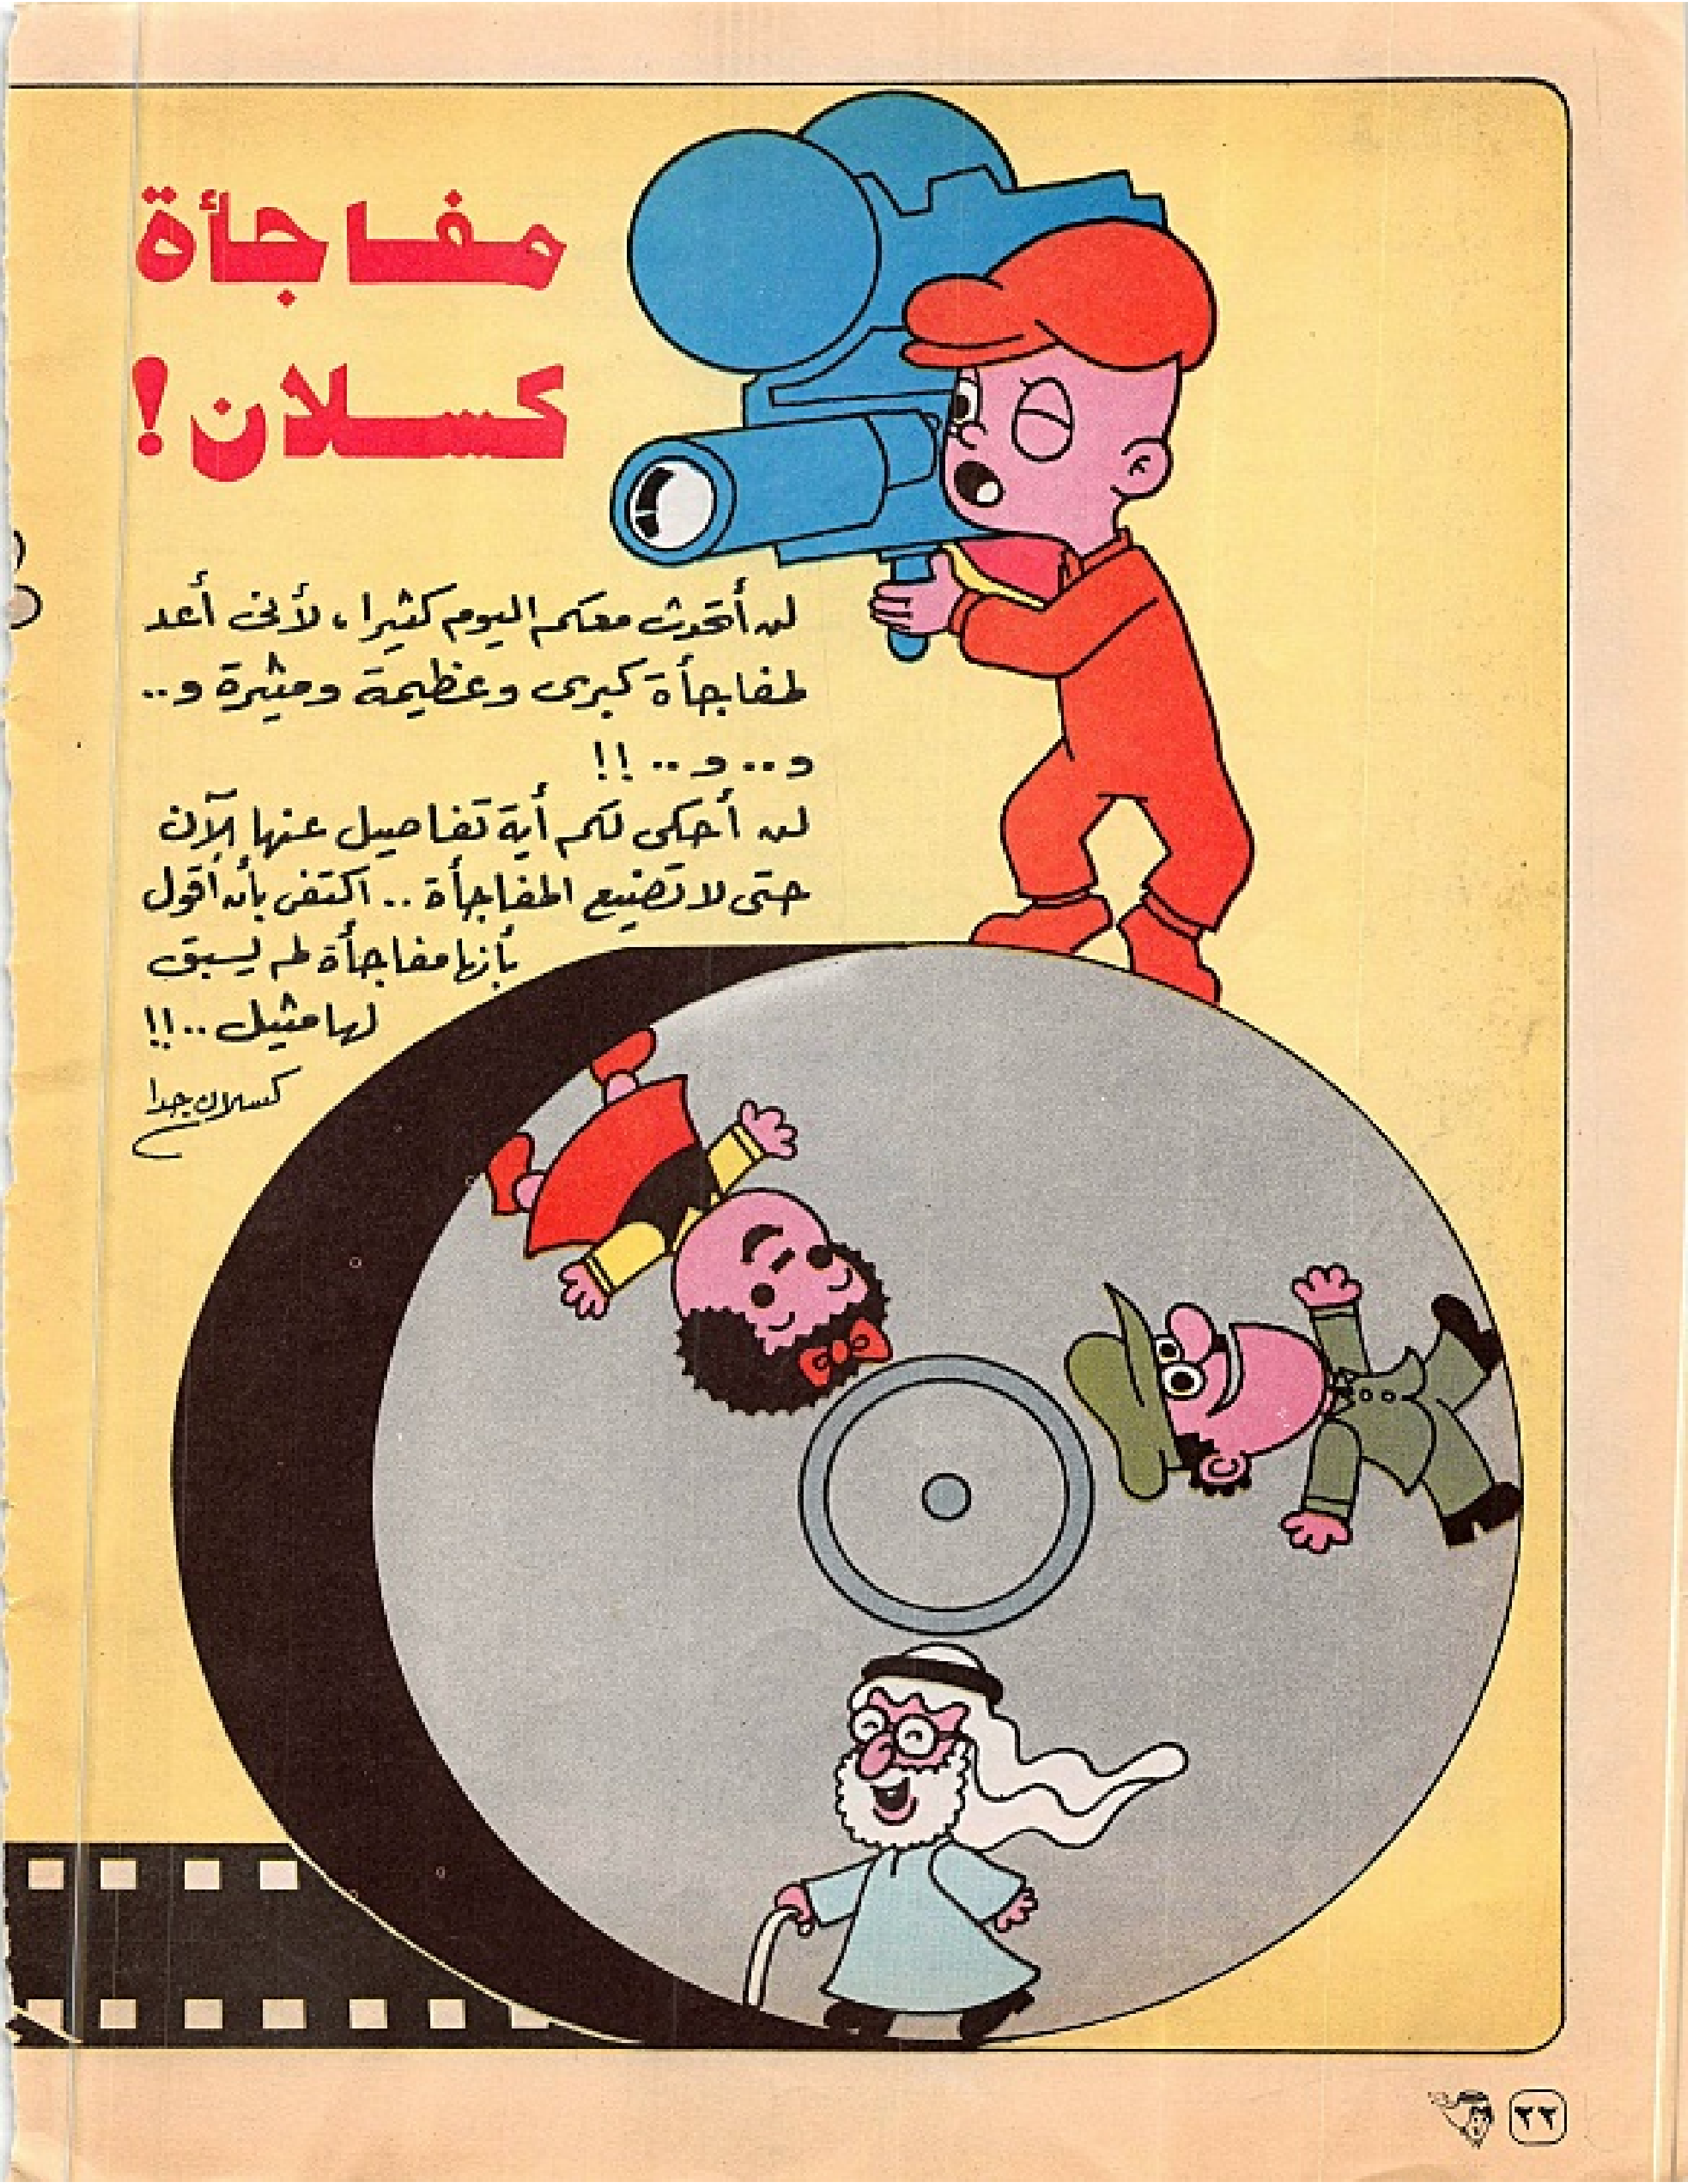 مفاجأة
كسلان!
لن أتحدث معكم اليوم كثيرا، لأنى أعد
لمفاجأة كبرى وعظيمة ومثيرة و..
و.. و.. !!
لن أحكى لكم أية تفاصيل عنها الآن
حتى لا تضيع المفاجأة .. اكتفى بأن أقول
بأنها مفاجأة لم يسبق
لها مثيل ..!!
كسلان جدا
٢٢